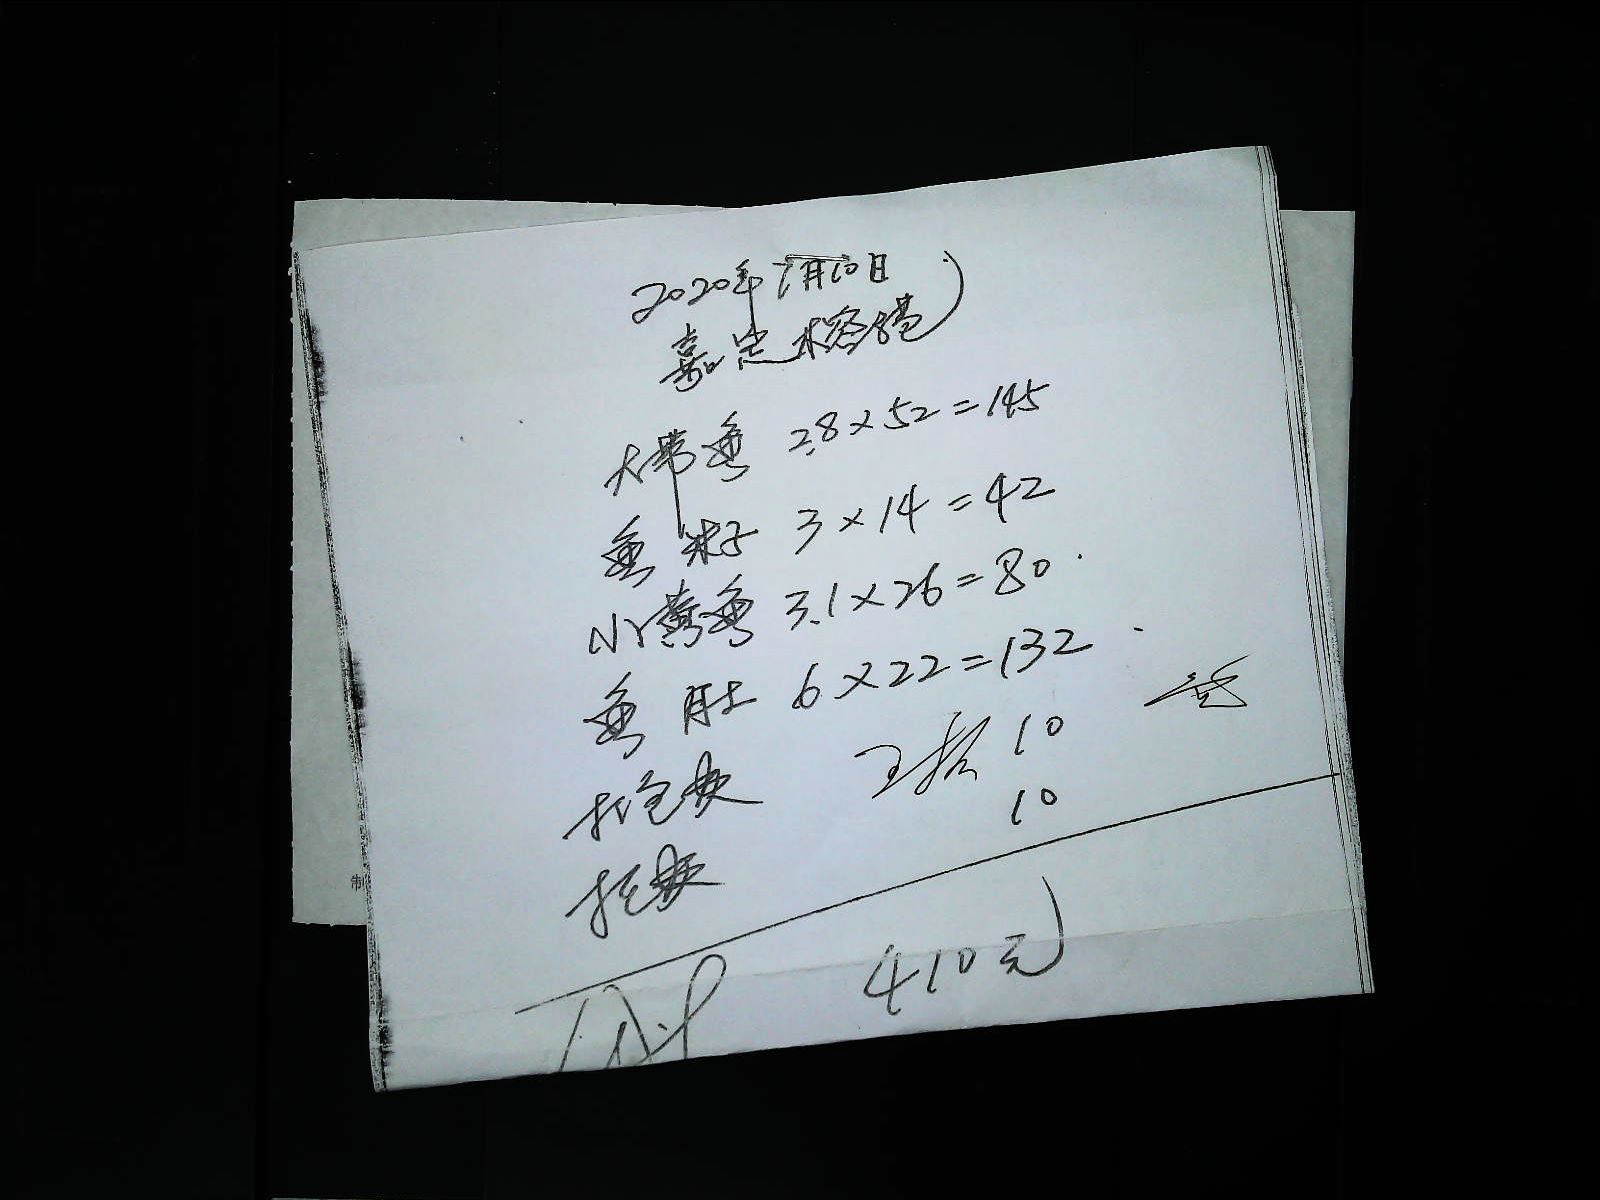 2020年7月10日
嘉定
大带鱼 2.8×52=145
鱼籽 3×14=42
小黄鱼 3.1×26=80
鱼肚 6×22=132
打包费 10
10
410元
制